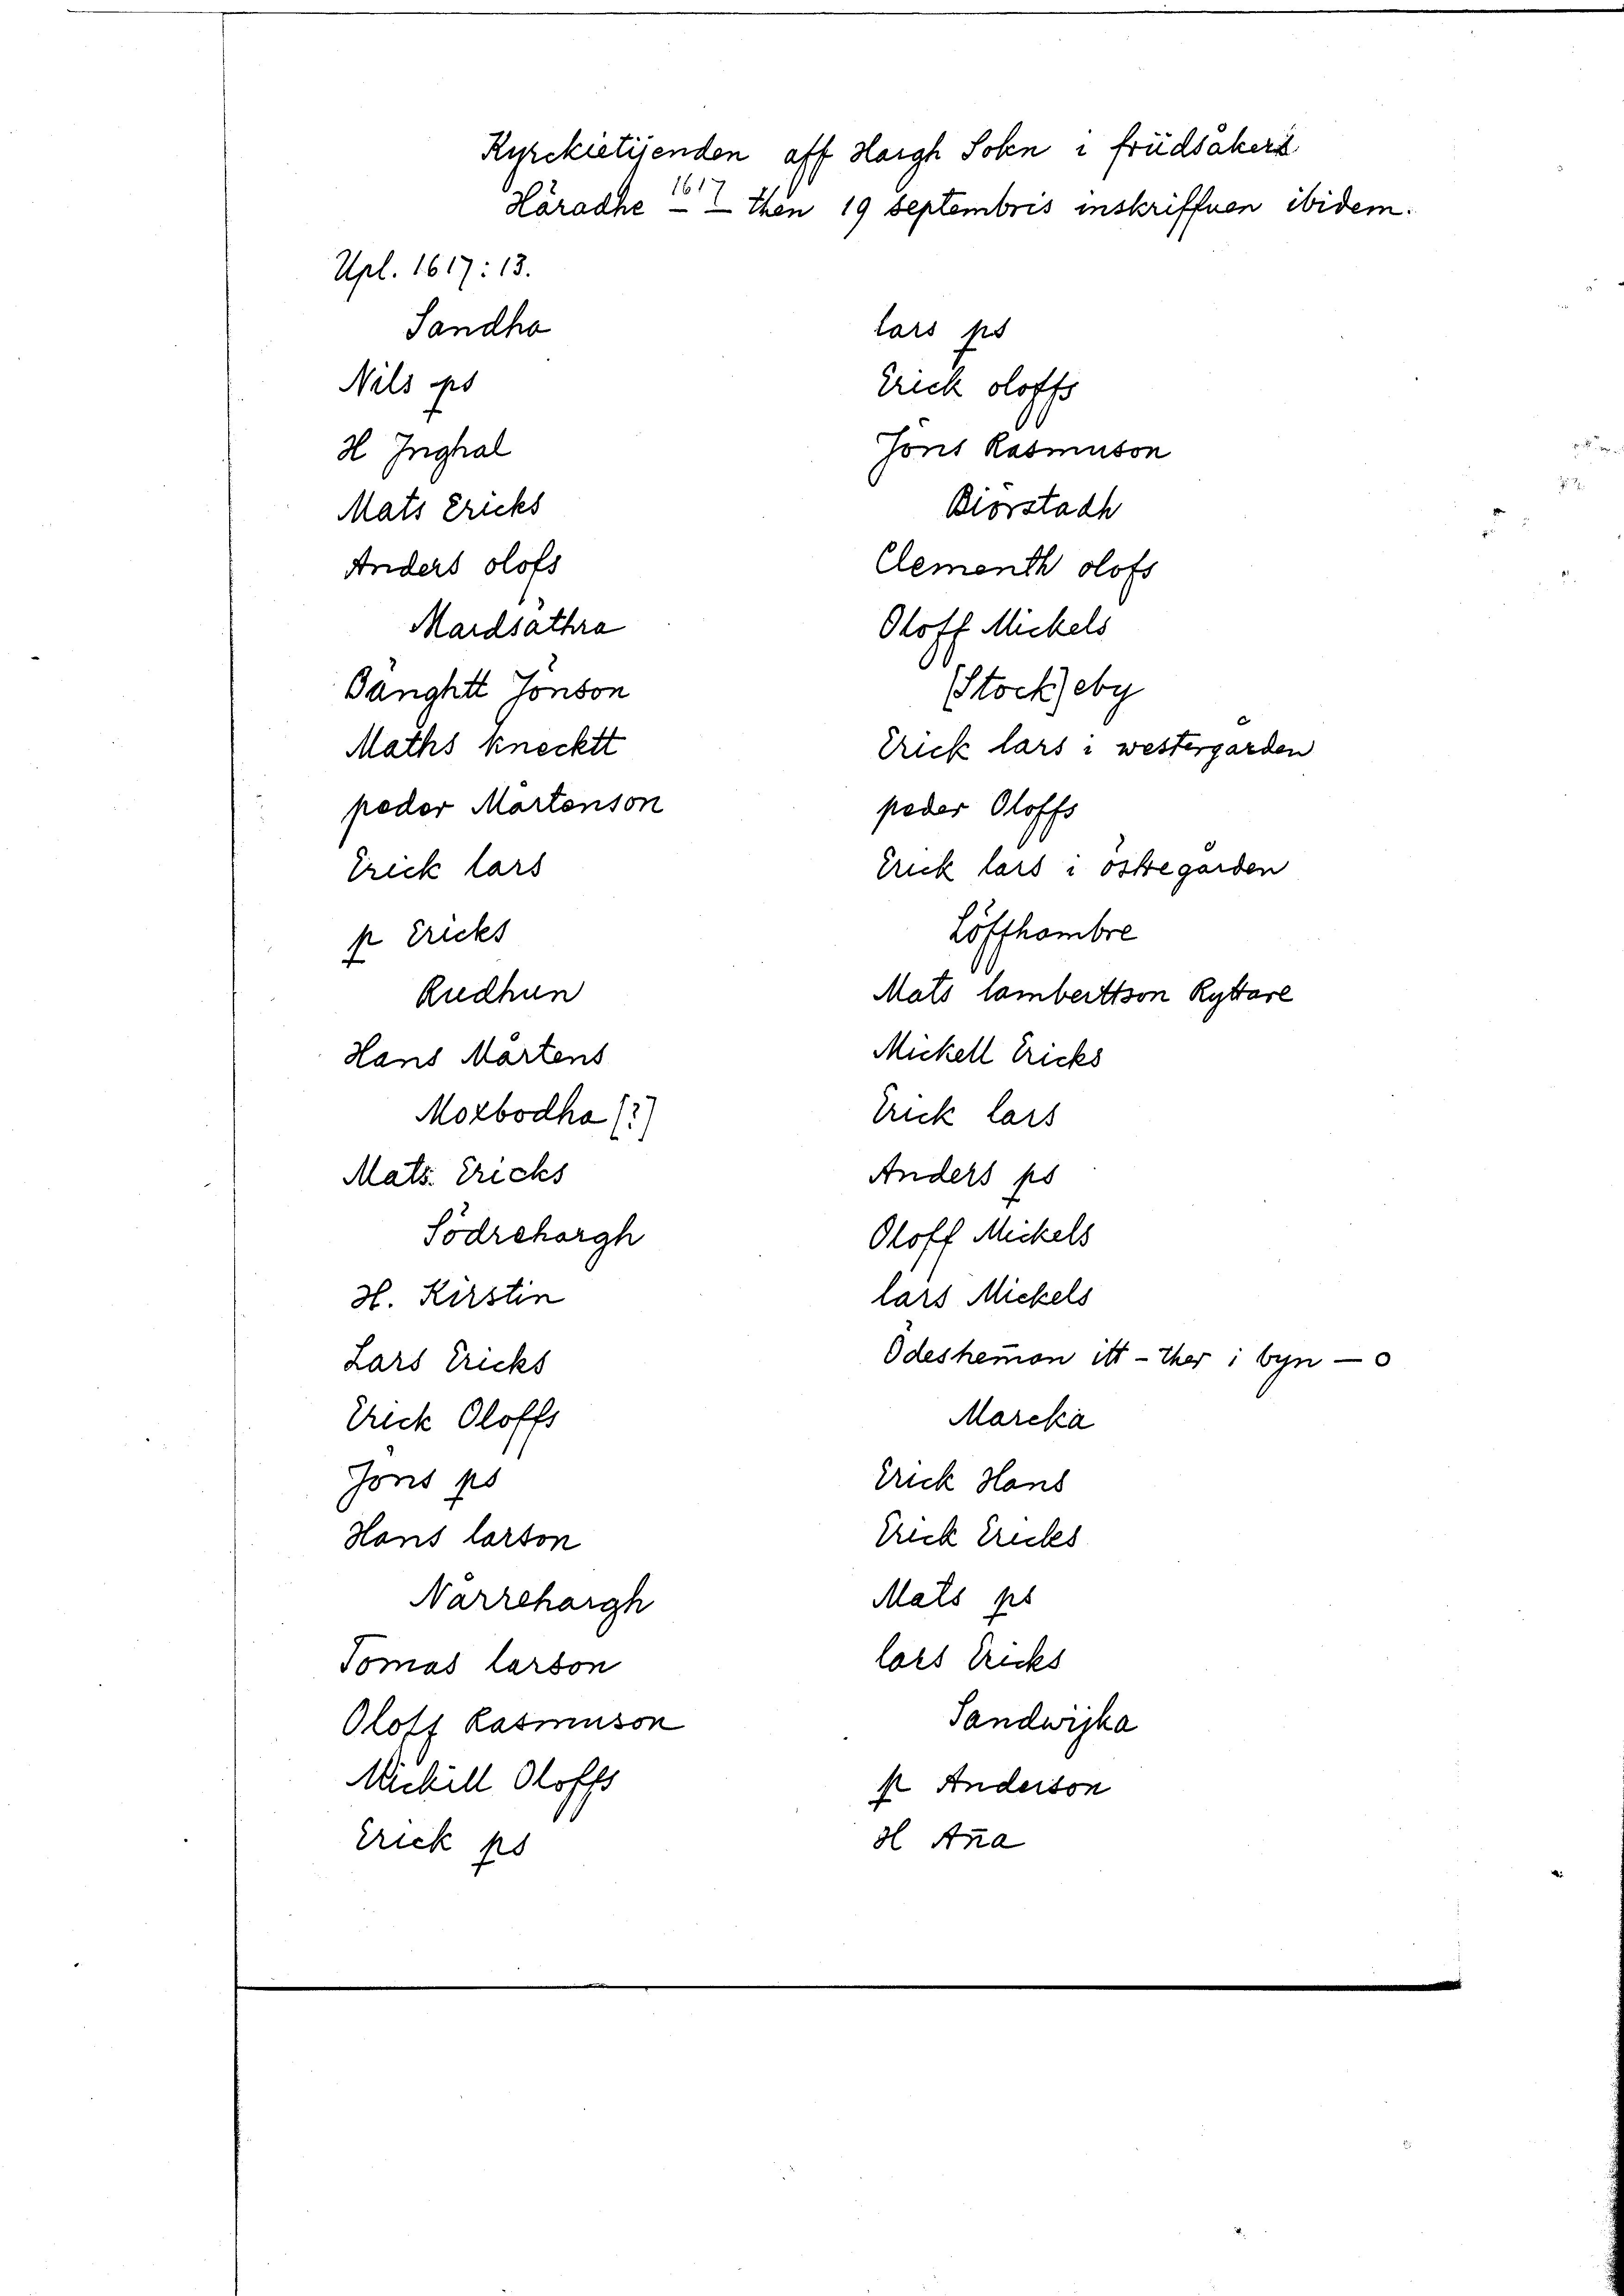 Kyrckietijenden aff Hargh Sokn i früdsåkers
Häradhe - 1617 - then 19 septembris inskriffuen ibidem.
Upl. 1617:13.
Sandha
Nils ps
H Inghal
Mats Ericks
Anders olofs
Mardsäthra
Bänghtt Jönson
Maths knecktt
peder Mårtenson
Erick lars
p Ericks
Rudhun
Hans Mårtens
Moxbodha (?)
Mats Ericks
Södrehargh
H. Kirstin
Lars Ericks
Erick Oloffs
Jöns ps
Hans larson
Närrehargh
Tomas larson
Oloff Rasmuson
Mickill Oloffs
Erick ps
lars ps
Erick oloffs
Jöns Rasmuson
Biörstadh
Clementh olofs
Oloff Mickels
(Stock)eby
Erick lars i westergården
peder Oloffs
Erick lars i östregården
Löffhambre
Mats lamberttson Ryttare
Mickell Ericks
Erick lars
Anders ps
Oloff Mickels
lars Mickels
Ödeshem̄an itt - ther i byn - 0
Marcka
Erick Hans
Erick Ericks
Mats ps
lars Ericks
Sandwijka
p Anderson
H An̄a